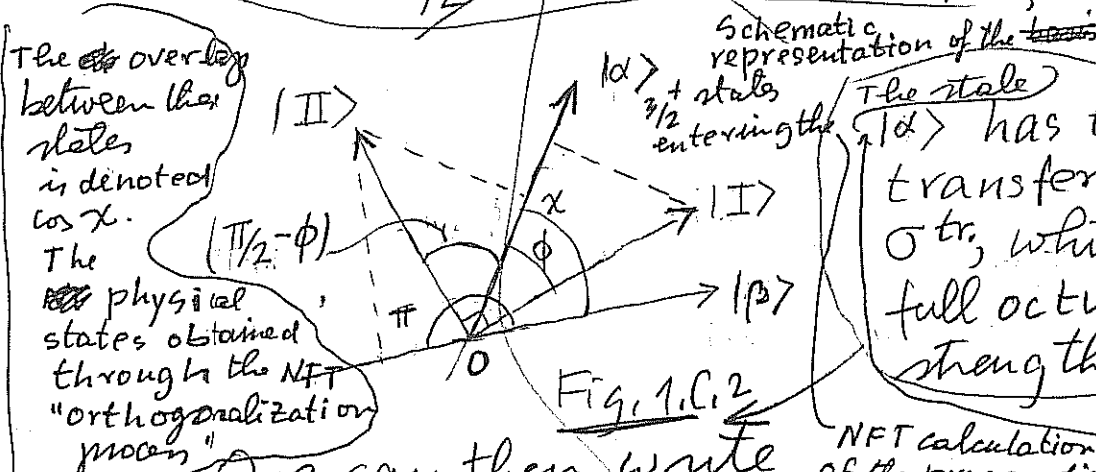 The overlap
between the
states
is denoted
cos χ.
The
physical
states obtained
through the NFT
"orthogonalization
process"
|II>
(π/2-φ)
π
O
|α>
χ
φ
|I>
|β>
Fig. 1.C.2
Schematic
representation of the basis
3/2+ states
entering the
The state
|α> has
transfer
σ tr.,
full octu
strength
NFT calculation
can then write
of the